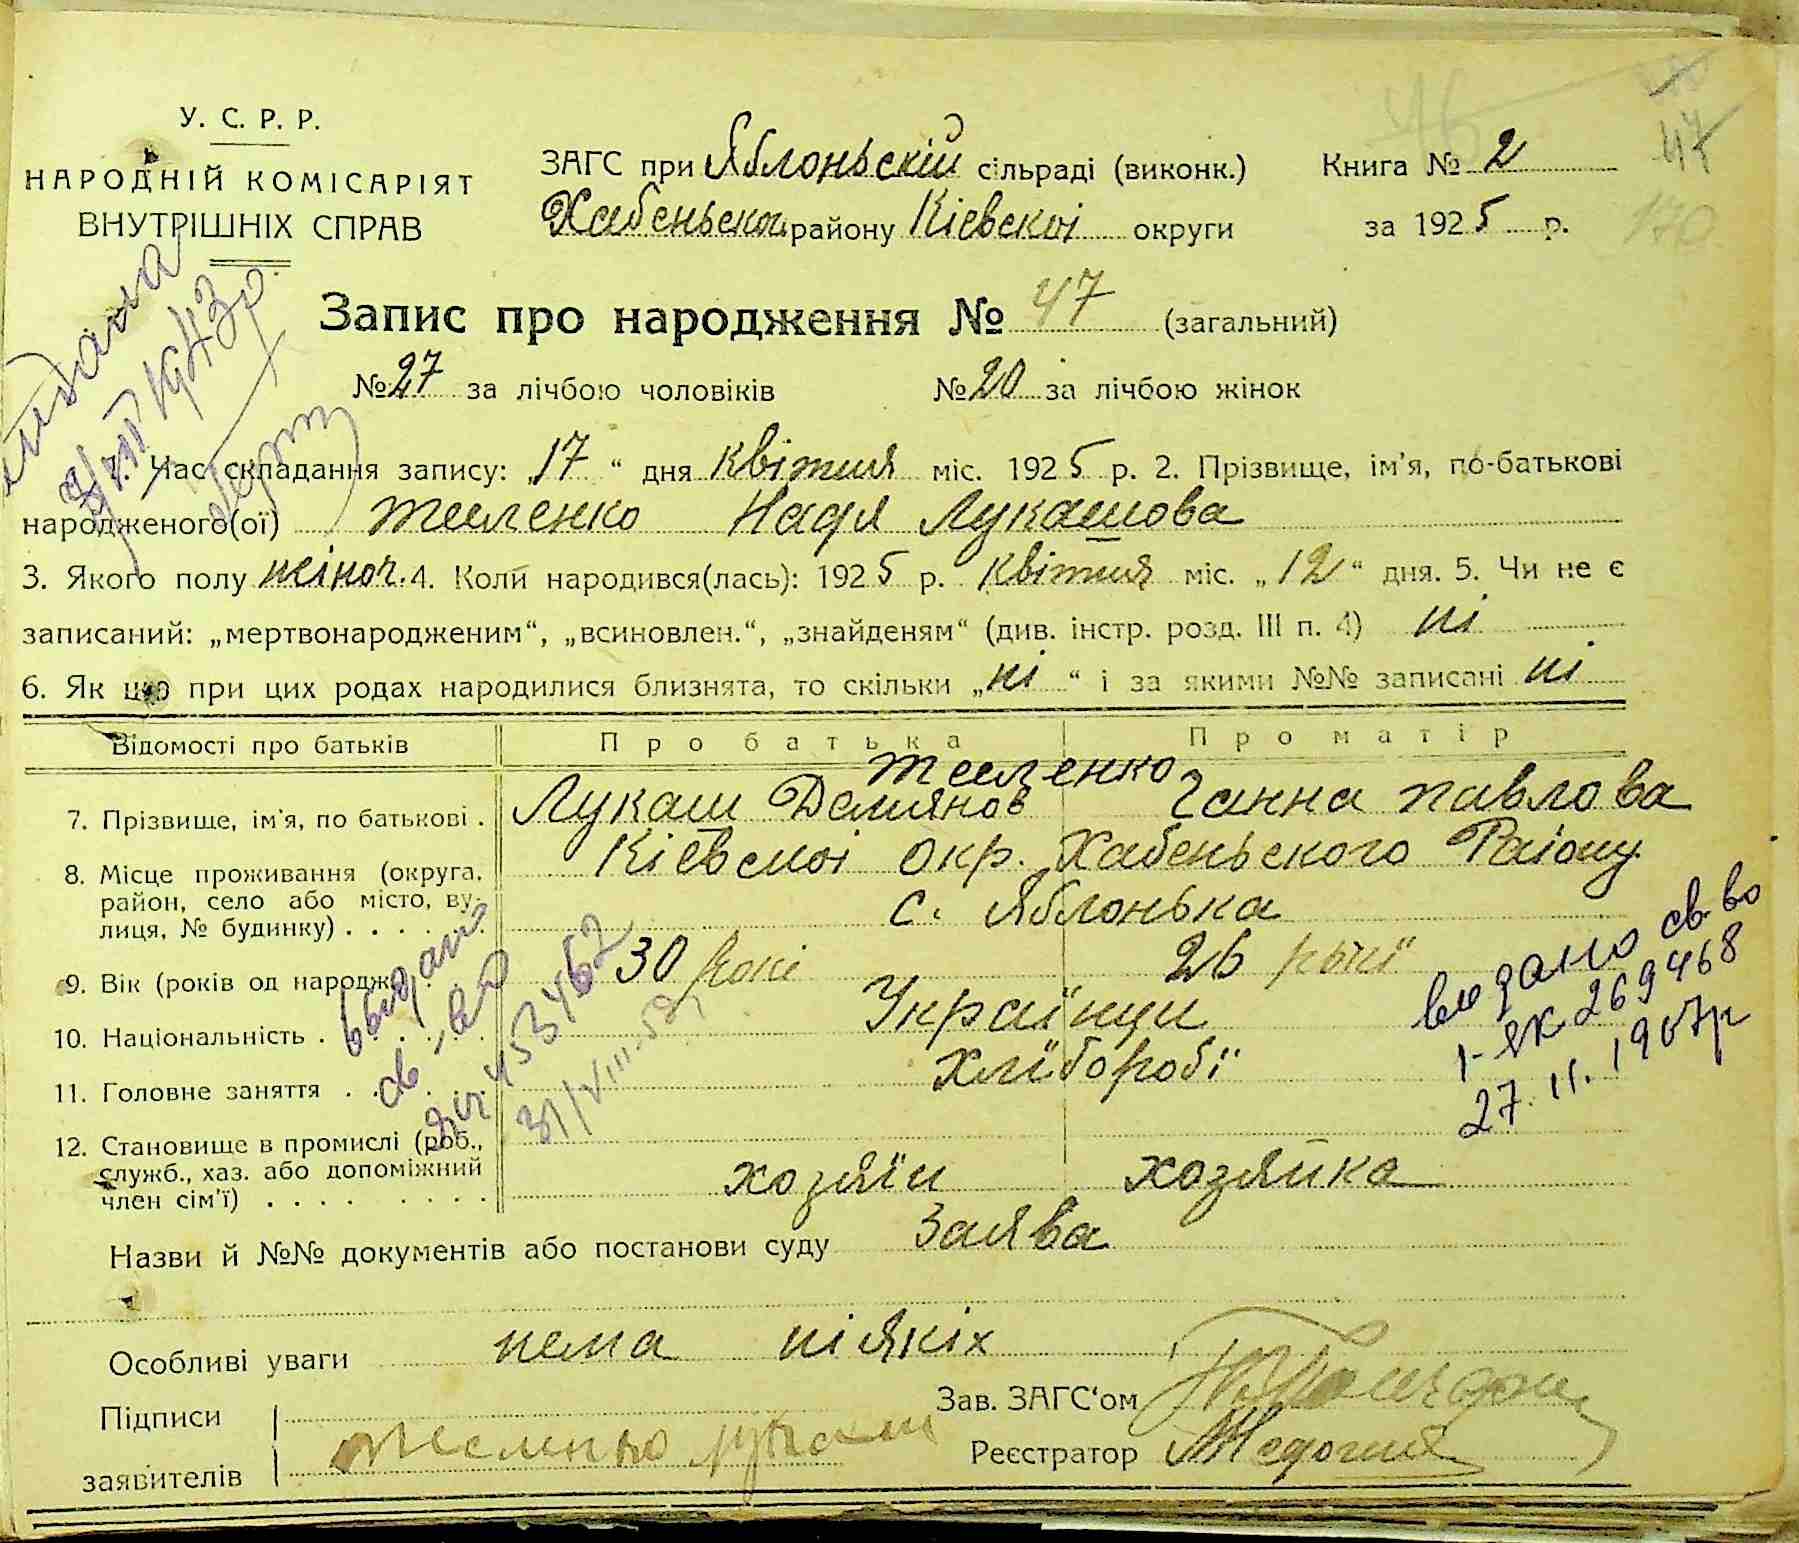 У. С. Р. Р.
НАРОДНІЙ КОМІСАРІЯТ
ВНУТРІШНІХ СПРАВ
ЗАГС при Яблоньскій сільраді (виконк.)
Хабеньскоі району Кіевскоі округи
Книга № 2
за 1925 р.
46
47
170
Запис про народження № 47 (загальний)
№ 27 за лічбою чоловіків № 20 за лічбою жінок
1. Час складання запису: „17“ дня квітня міс. 1925 р. 2. Прізвище, ім'я, по-батькові
народженого(ої) Надя Лукашова
3. Якого полу жіноч. 4. Коли народився(лась): 1925 р. квітня міс. „12“ дня. 5. Чи не є
записаний: „мертвонародженим“, „всиновлен.“, „знайденям“ (див. інстр. розд. III п. 4) ні
6. Як що при цих родах народилися близнята, то скільки „ні“ і за якими №№ записані ні
Відомості про батьків Про батька Про матір
7. Прізвище, ім'я, по батькові . Лукаш Демянов Ганна павлова
8. Місце проживання (округа, район, село або місто, вулиця, № будинку) . . . . . .
Кіевскоі окр. Хабеньского Району
с. Яблонька
9. Вік (років од народж.) 30 рокі 26 рокі
10. Національність . Українци
11. Головне заняття . . Хліборобі
12. Становище в промислі (роб.,
служб., хаз. або допоміжний
член сім'ї) . . . . . . . . хозяїн хозяйка
выдано
св-во
453462
31/VIII-
выдано св-во
269468
27.11.
Назви й №№ документів або постанови суду Заява
Особливі уваги нема ніякіх
Підписи
заявителів
Зав. ЗАГС'ом
Реєстратор